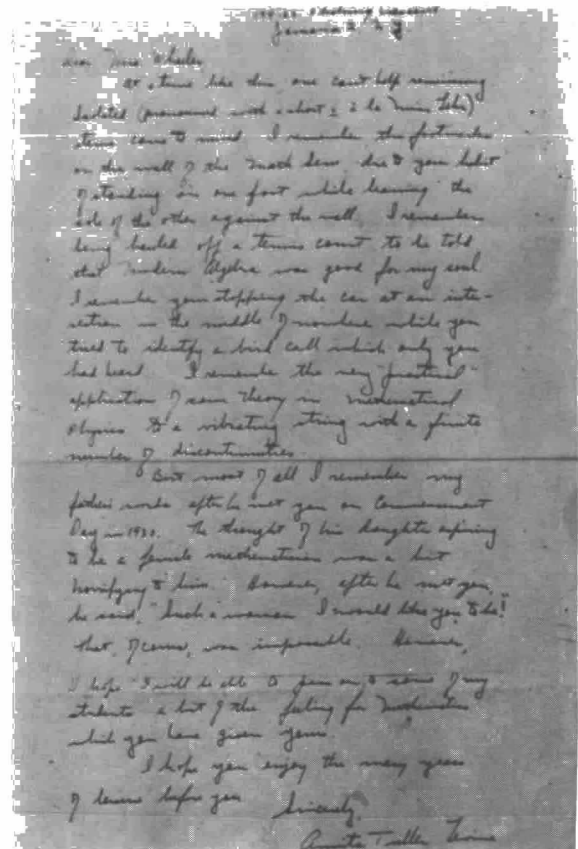 Jamaica 2, N.Y.
Dear Mrs. Wheeler
At a time like this one can't help reminiscing
Isolated (pronounced with a short i à la Miss Lehr)
items come to mind. I remember the footmarks
on the wall of the Math Sem due to your habit
of standing on one foot while leaning the
sole of the other against the wall. I remember
being hauled off a tennis court to be told
that Modern Algebra was good for my soul
I remember your stopping the car at an inter-
section in the middle of nowhere while you
tried to identify a bird call which only you
had heard. I remember the very "practical"
application of some theory in mathematical
physics to a vibrating string with a finite
number of discontinuities.
But most of all I remember my
father's words after he met you on Commencement
Day in 1930. The thought of his daughter aspiring
to be a female mathematician was a bit
horrifying to him. However, after he met you,
he said, "Such a woman I would like you to be!"
That, of course, was impossible. However,
I hope I will be able to pass on to some of my
students a bit of the feeling for mathematics
which you have given yours.
I hope you enjoy the many years
of leisure before you
Sincerely,
Annita Tuller Levine